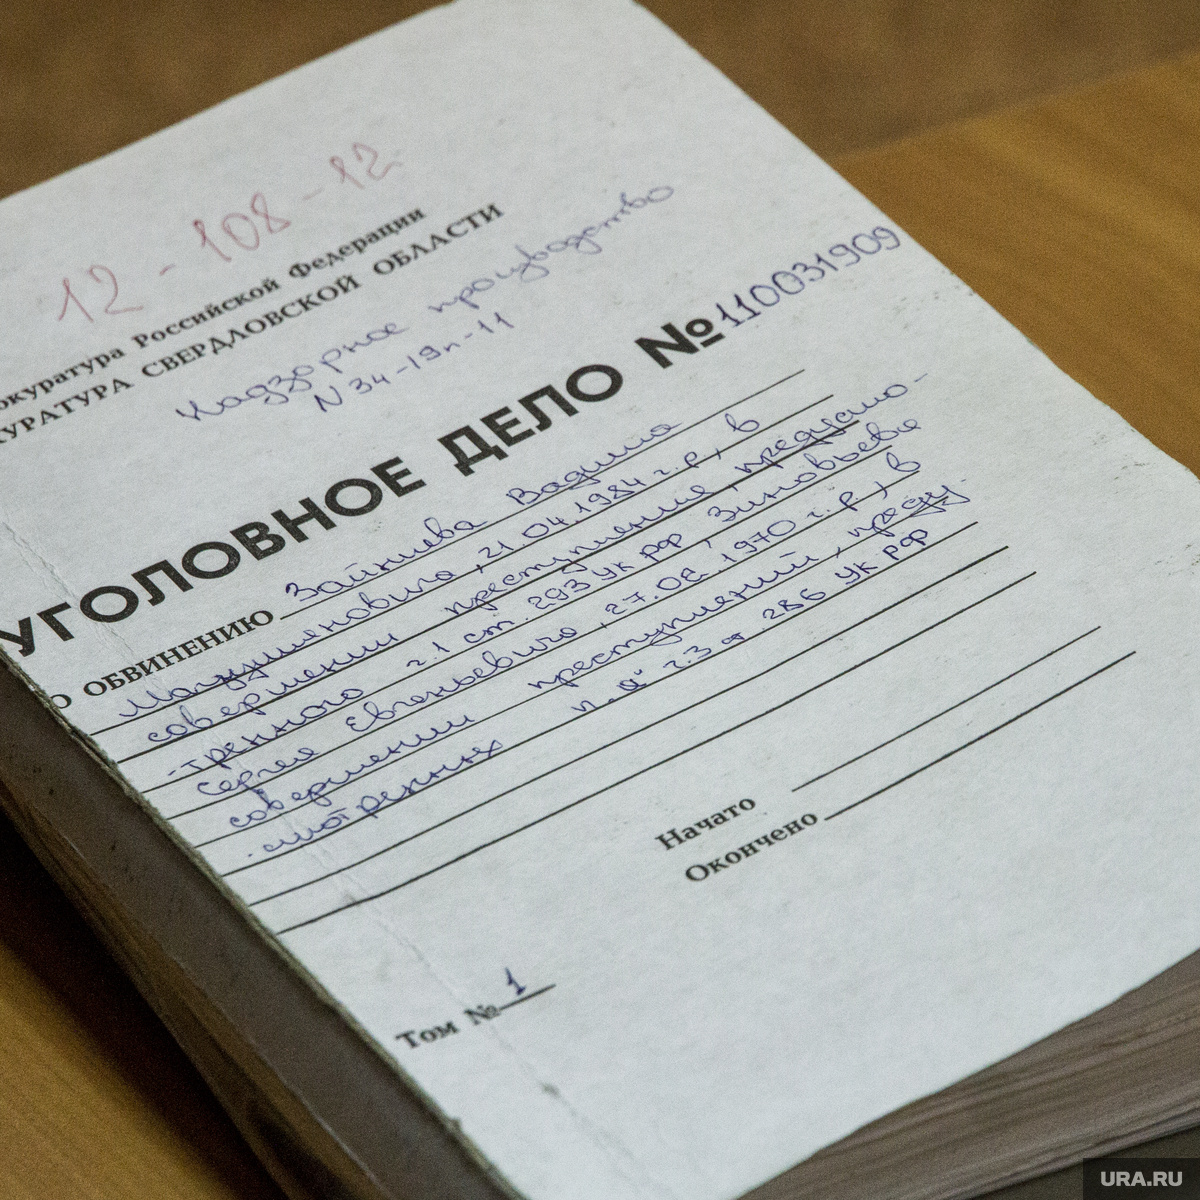 12-108-12
окуратура Российской Федерации
УРАТУРА СВЕРДЛОВСКОЙ ОБЛАСТИ
Надзорное производство
N 34-19п-11
УГОЛОВНОЕ ДЕЛО № 110031909
О ОБВИНЕНИЮ Зайниева Вадима
21.04.1984 г.р., в
совершении преступления, предусмо-
-тренного ч.1 ст. 293 УК РФ, Зиновьева
Сергея Евгеньевича, 27.08.1970 г.р., в
совершении преступлений, преду-
-смотренных п. "а" ч.3 ст. 286 УК РФ
Начато
Окончено
Том № 1
URA.RU